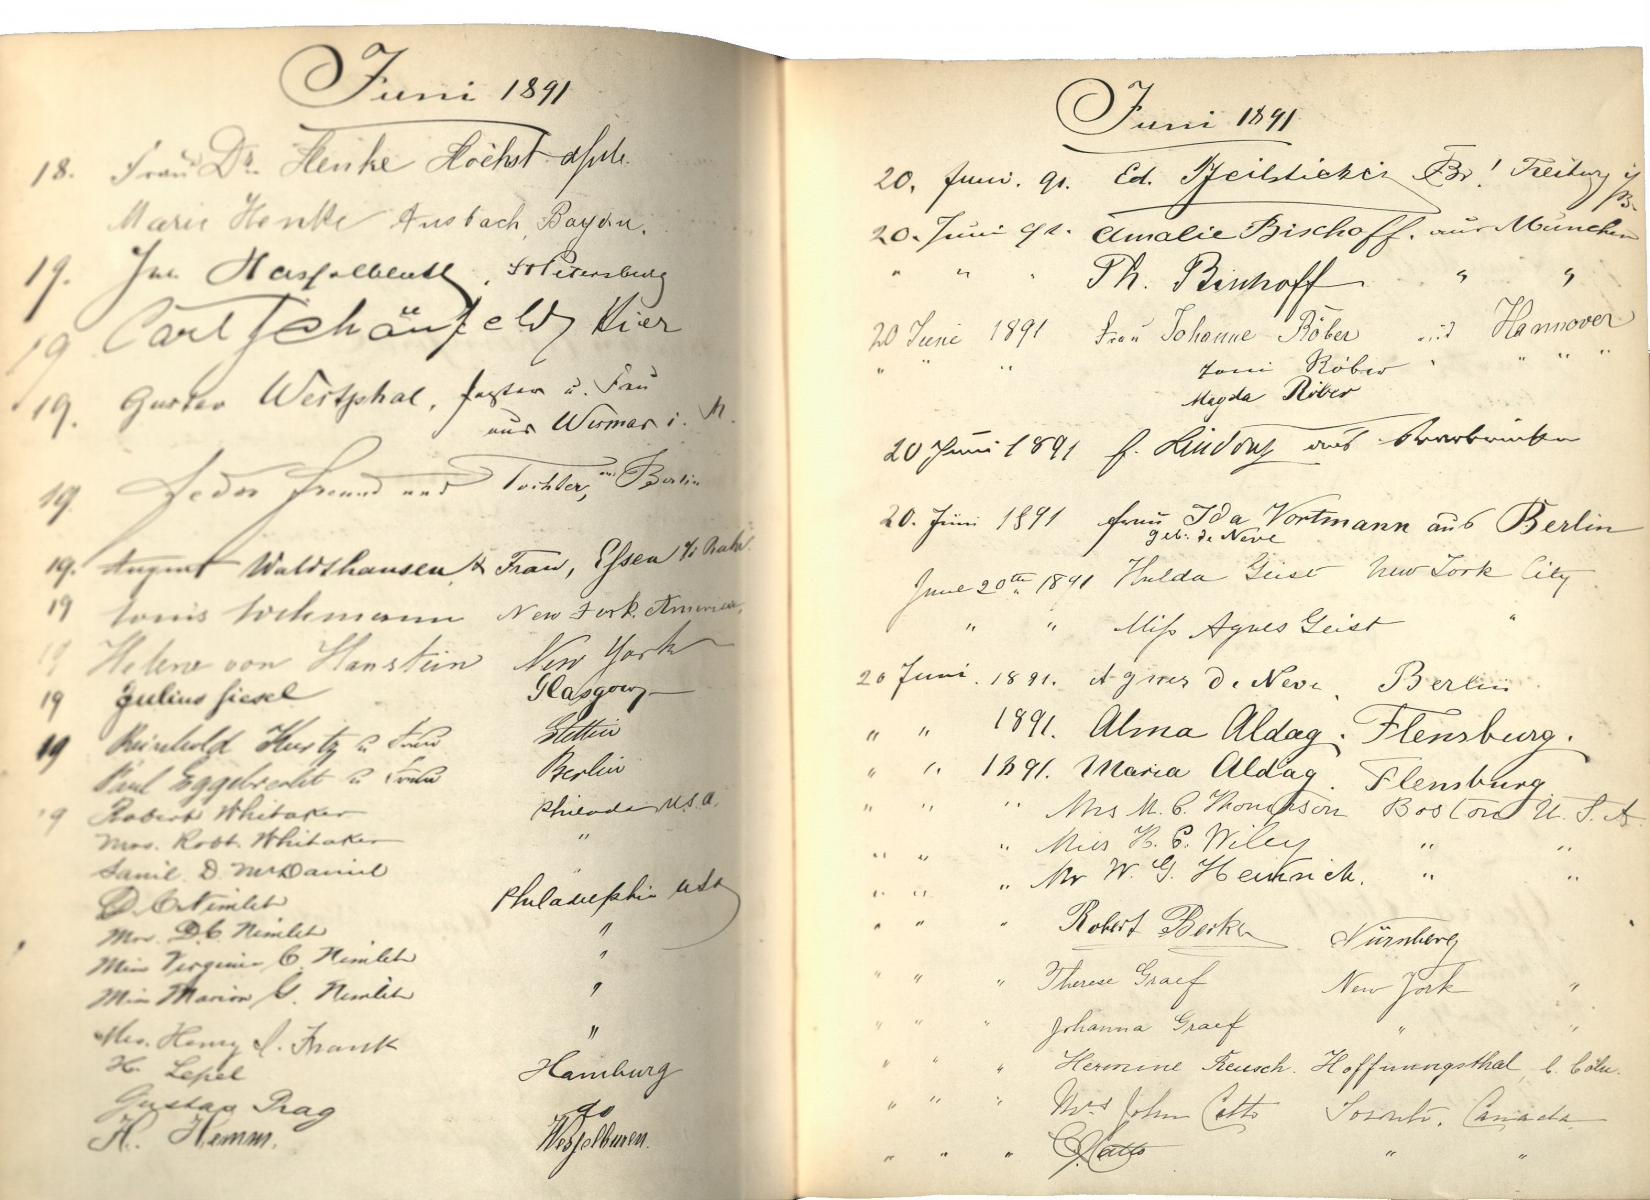 Juni 1891
18. Frau Dr. Henke Höchst
Marie Henke Ansbach, Bayern.
19. St Petersburg
19 Carl Schänfeld, Hier
19. Gustav Westphal, u. Frau
aus Wismar i. M.
19. Fedor Freund und Tochter, aus Berlin
19. August Waldthausen & Frau, Essen a/d Ruhr.
19 Louis Lohmann New York. America.
19 Helene von Hanstein New York
19 Julius Giesel Glasgow
19 Reinhold Kurtz u Frau Stettin
Paul Eggebrecht u Frau Berlin
19 Robert Whitaker Philada U.S.A.
Mrs. Robt. Whitaker "
Saml. D. McDaniel
D. C. Nimlet Philadelphia USA
Mrs. D. C. Nimlet "
Miss Virginia C. Nimlet "
Miss Marion G. Nimlet "
Mrs. Henry S. Frank "
H. Lepel Hamburg
Gustav Prag do
H. Hemm. Wesselburen.
Juni 1891
20. Juni. 91. Ed. Beilsticker Br! Freiburg i/B.
20. Juni 91. Amalie Bischoff. aus München
" " " Th. Bischoff " "
20 Juni 1891 Frau Johanne Röber aus Hannover
" " " Toni Röber " " " "
Magda Röber
20 Juni 1891 aus Saarbrücken
20. Juni 1891 Frau Ida Vortmann aus Berlin
geb. de Neve
June 20th 1891 Hulda Geist New York City
" " Miss Agnes Geist "
20 Juni. 1891. Agnes de Neve, Berlin
" " 1891. Alma Aldag. Flensburg.
" " 1891. Maria Aldag. Flensburg.
" " " Mrs M. C. Thompson Boston U. S. A.
" " " Miss H. E. Wiley " "
" " " Mr W. G. Heinrich. " "
" " " Robert Becker Nürnberg
" " " Therese Graef New York "
" " " Johanna Graef " "
" " " Hermine Reusch. Hoffnungsthal, b. Cöln.
" " " Mrs John Catto Toronto, Canada
" " " Catto " "